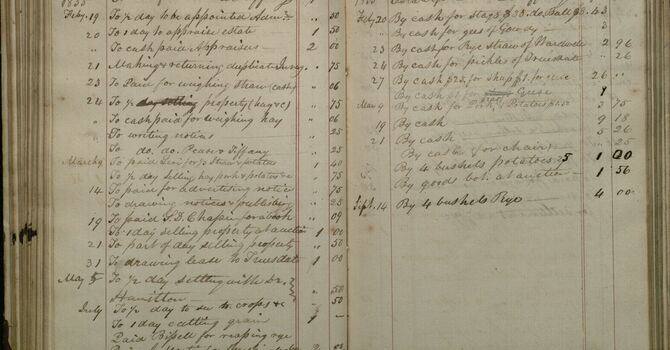 1835
Feby. 19 To ½ day to be appointed Adm. " 50
20 To 1 day to appraise estate 1 50
" To cash paid Appraisers 2 00
21 Making & returning duplicate Invy. " 75
23 To Paid for weighing straw (cash) " 06
24 To ½ day selling property (hay &c) " 75
" To cash paid for weighing hay " 06
" To writing notices " 25
" To do. do. Pease & Tiffany " 25
March 9 To paid for straw & potatoes 1 40
" To ½ day selling hay pork & potatoes &c " 75
14 To paid for Advertising notice " 75
To drawing notices & publishing " 25
19 To paid S.D. Chapin for a book " 09
To 1 day selling property at auction 1 00
21 To part of day selling property " 50
31 To drawing lease to Truesdale 1 00
May To ½ day settling with Dr.
Hamilton " 50
July To ½ day to see to crops &c " 50
To 1 day cutting grain 1 —
Paid Bissell for reaping rye
Feby. 20 By cash for Stags $38. do. Ball $5. 43
" By cash for of Goudy 3
23 By cash for Rye Straw of Wardwell 2 96
24 By cash for pickles of Truesdale " 26
27 By cash $25. for 26 "
By cash $1 for Geese 1
Mar 9 By cash for Potatoes 3 75
19 By cash 9 18
21 By cash 5 26
By cash for chairs " 25
By 4 bushels potatoes 1 00
By goods bot. at auction 1 56
Sept. 14 By 4 bushels Rye 4 00